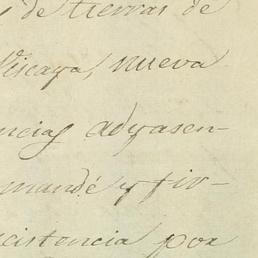 de tierras de
Viscaya, nueva
ncias adyasen-
mandé y fir-
cistencia por